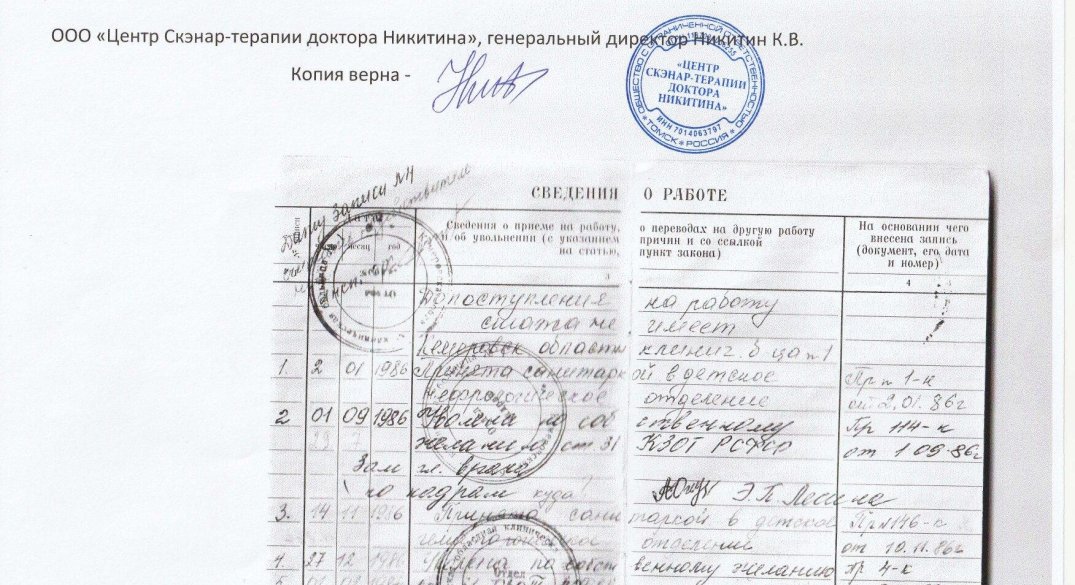 ООО «Центр Скэнар-терапии доктора Никитина», генеральный директор Никитин К.В.
Копия верна -
ОБЩЕСТВО С ОГРАНИЧЕННОЙ ОТВЕТСТВЕННОСТЬЮ
«ЦЕНТР
СКЭНАР-ТЕРАПИИ
ДОКТОРА
НИКИТИНА»
ИНН 7014063797
ТОМСК * РОССИЯ
СВЕДЕНИЯ О РАБОТЕ
Дату записи №4
месяц год
Сведения о приеме на работу, о переводах на другую работу
об увольнении (с указанием причин и со ссылкой
на статью, пункт закона)
На основании чего
внесена запись
(документ, его дата
и номер)
3 4
До поступления на работу
стажа не имеет
Кемеровск областн клинич. б ца №1
1. 2 01 1986 Принята санитаркой в детское Пр № 1-к
отделение от 2.01.86г
2 01 09 1986 Уволена по собственному Пр 114-к
желанию ст 31 КЗОТ РСФСР от 1 09-86г
Зам гл. врача
по кадрам
3. 14 11 1986 Принята санитаркой в детское Пр №146-к
отделение от 10.11.86г
4. 27 12 1986 Уволена по собственному желанию Пр 4-к
Отдел